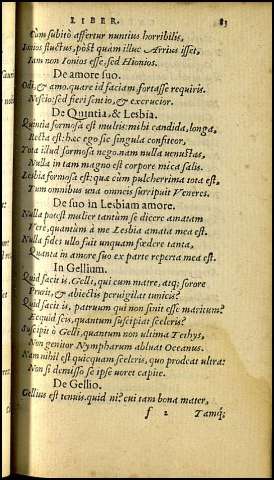 LIBER. 83
Cum subitò affertur nuntius horribilis,
Ionios fluctus, pòst quam illuc Arrius isset,
Iam non Ionios esse, sed Hionios.
De amore suo.
Odi, & amo. quare id faciam, fortasse requiris.
Nescio: sed fieri sentio, & excrucior.
De Quintia, & Lesbia.
Quintia formosa est multis: mihi candida, longa,
Recta est: hæc ego sic singula confiteor,
Tota illud formosa nego. nam nulla uenustas,
Nulla in tam magno est corpore mica salis.
Lesbia formosa est: quæ cùm pulcherrima tota est,
Tum omnibus una omneis surripuit Veneres.
De suo in Lesbiam amore.
Nulla potest mulier tantum se dicere amatam
Vere, quantùm à me Lesbia amata mea est.
Nulla fides ullo fuit unquam fœdere tanta,
Quanta in amore suo ex parte reperta mea est.
In Gellium.
Quid facit is, Gelli, qui cum matre, atq; sorore
Prurit, & abiectis peruigilat tunicis?
Quid facit is, patruum qui non sinit esse maritum?
Ecquid scis, quantum suscipiat sceleris?
Suscipit ô Gelli, quantum non ultima Tethys,
Non genitor Nympharum abluit Oceanus.
Nam nihil est quicquam sceleris, quo prodeat ultra:
Non si demisso se ipse uoret capite.
De Gellio.
Gellius est tenuis. quid ni? cui tam bona mater,
f 2 Tamq;